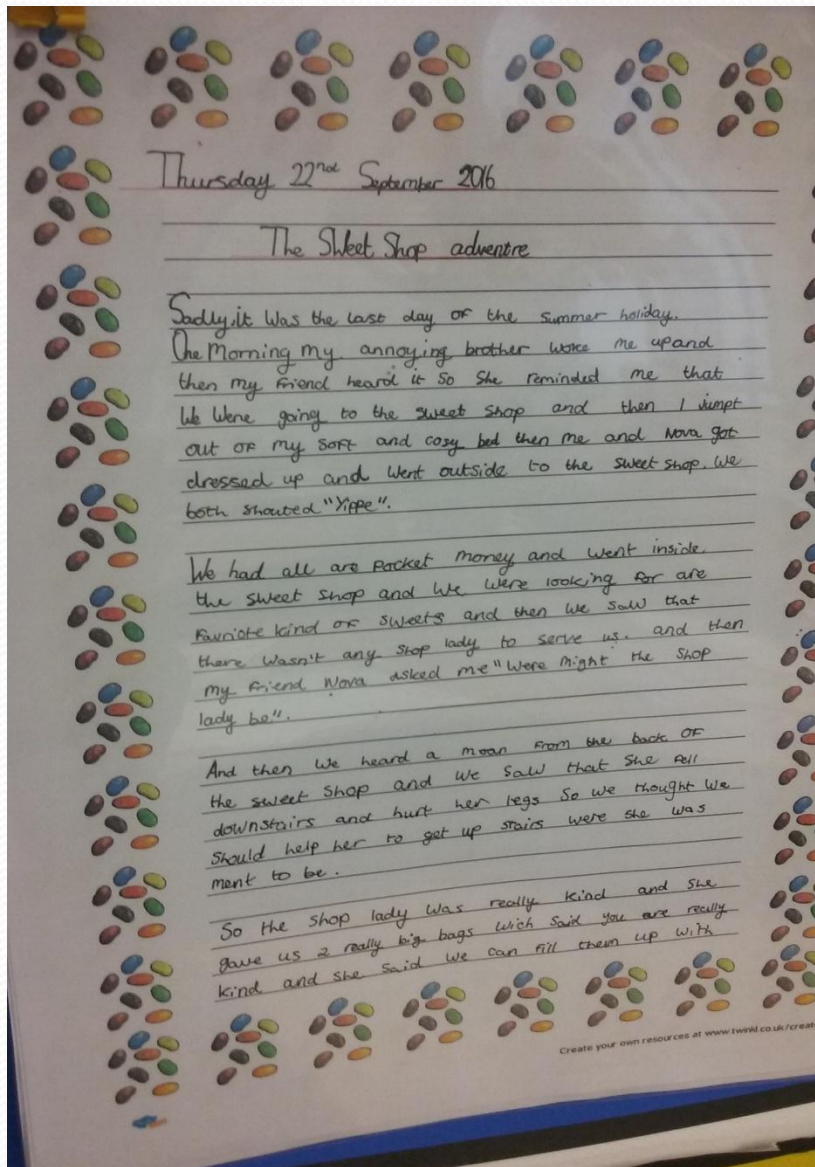 Thursday 22nd September 2016
The Sweet Shop adventre
Sadly, it Was the last day of the summer holiday.
One Morning my annoying brother woke me up and
then my friend heard it so she reminded me that
We Were going to the sweet shop and then I Jumpt
out of my soft and cosy bed then me and Nova got
dressed up and Went outside to the sweet shop. We
both shouted "Yippe".
We had all are Pocket money and went inside
the sweet shop and We were looking for are
favriote kind of sweets and then we saw that
there wasn't any shop lady to serve us. and then
my friend Nova asked me "Were might the shop
lady be".
And then we heard a moan from the back of
the sweet shop and we saw that she fell
downstairs and hurt her legs so we thought we
should help her to get up stairs were she was
ment to be.
So the shop lady was really kind and she
gave us 2 really big bags wich said you are really
kind and she said we can fill them up with
Create your own resources at www.twinkl.co.uk/creat